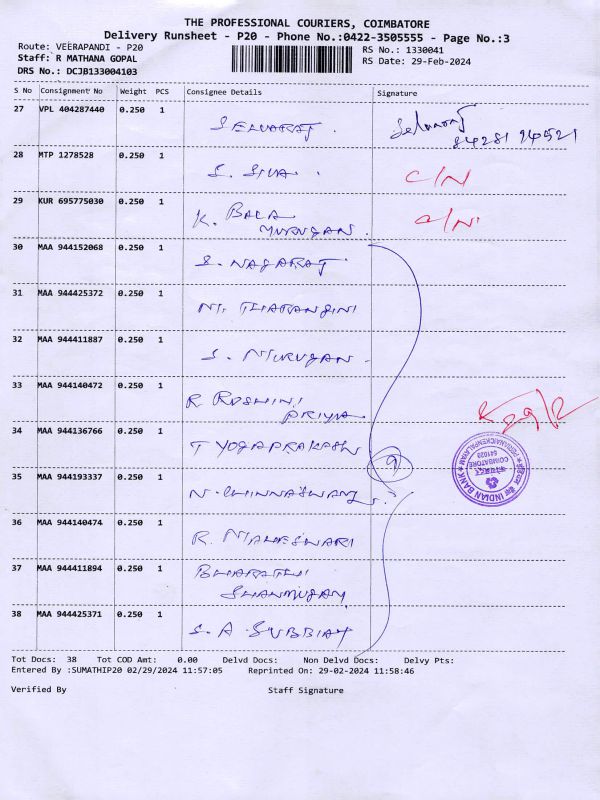 THE PROFESSIONAL COURIERS, COIMBATORE
Delivery Runsheet - P20 - Phone No.:0422-3505555 - Page No.:3
Route: VEERAPANDI - P20 RS No.: 1330041
Staff: R MATHANA GOPAL RS Date: 29-Feb-2024
DRS No.: DCJB133004103
S No Consignment No Weight PCS Consignee Details Signature
27 VPL 404287440 0.250 1 SELVARAJ. Selvaraj
84281 94521
28 MTP 1278528 0.250 1 S. SIVA. C/N
29 KUR 695775030 0.250 1 K. BALA C/N
MURUGAN.
30 MAA 944152068 0.250 1 S. NAGARAJ
31 MAA 944425372 0.250 1 THARANGINI
32 MAA 944411887 0.250 1 S. MURUGAN.
33 MAA 944140472 0.250 1 R ROSHINI
PRIYA
34 MAA 944136766 0.250 1 T YOGAPRAKASH
9
35 MAA 944193337 0.250 1 N. CHINNASWAMY
36 MAA 944140474 0.250 1 R. MAHESWARI
37 MAA 944411894 0.250 1 BHARATHI
SHANMUGAM
38 MAA 944425371 0.250 1 S. A SUBBIAH
INDIAN BANK
COIMBATORE
641020
Tot Docs: 38 Tot COD Amt: 0.00 Delvd Docs: Non Delvd Docs: Delvy Pts:
Entered By :SUMATHIP20 02/29/2024 11:57:05 Reprinted On: 29-02-2024 11:58:46
Verified By Staff Signature